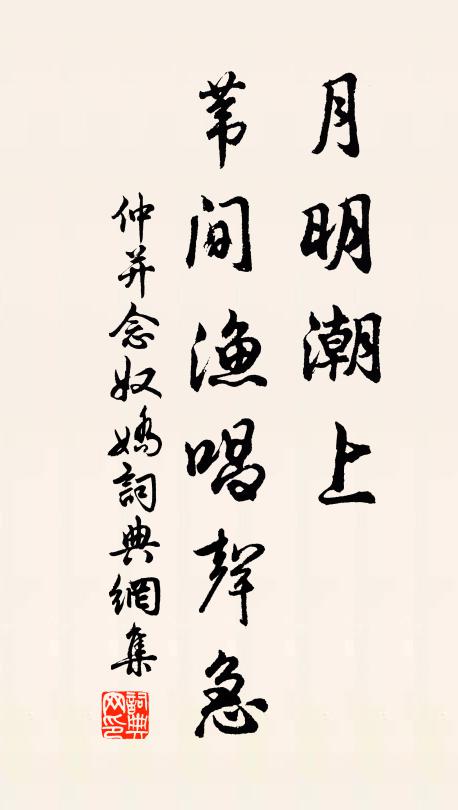 月明潮上
苇间渔唱聲急
仲并念奴娇詞典網集
詞典网印